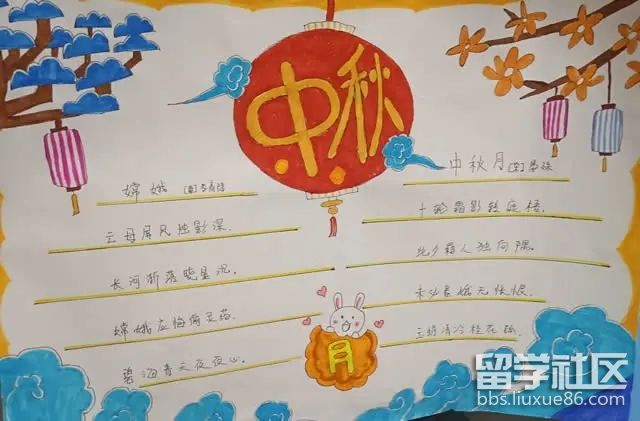 中秋
嫦娥 [唐]李商隐
云母屏风烛影深.
长河渐落晓星沉.
嫦娥应悔偷灵药.
碧海青天夜夜心.
中秋月[宋]晏殊
十轮霜影转庭梧.
此夕羁人独向隅.
未必素娥无怅恨.
玉蟾清冷桂花孤.
月
留学社区
bbs.liuxue86.com